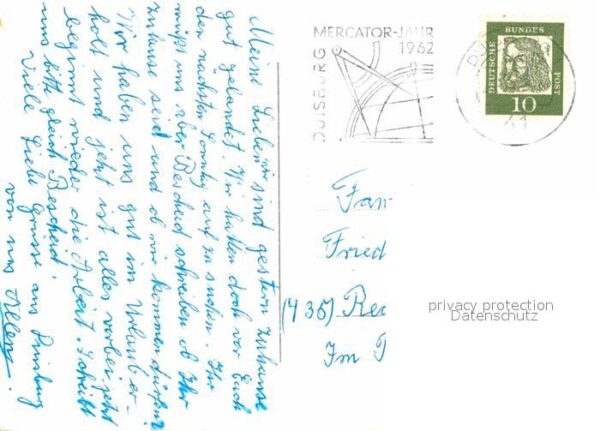 Meine Lieben wir sind gestern zuhause
gut gelandet. Wir hatten doch vor Euch
den nächsten Sonntag auf zu suchen. Ihr
müßt uns aber Bescheid schreiben ob Ihr
zuhause seid und ob wir kommen dürfen?
Wir haben uns gut im Urlaub er-
holt und jetzt ist alles vorbei jetzt
beginnt wieder die Arbeit. Schreibt
uns bitte gleich Bescheid!
Viele liebe Grüsse aus Duisburg
von uns Allen.
MERCATOR-JAHR
1962
DUISBURG
DEUTSCHE
BUNDES
POST
10
Fam
Fried
(435) Rec
Im
privacy protection
Datenschutz